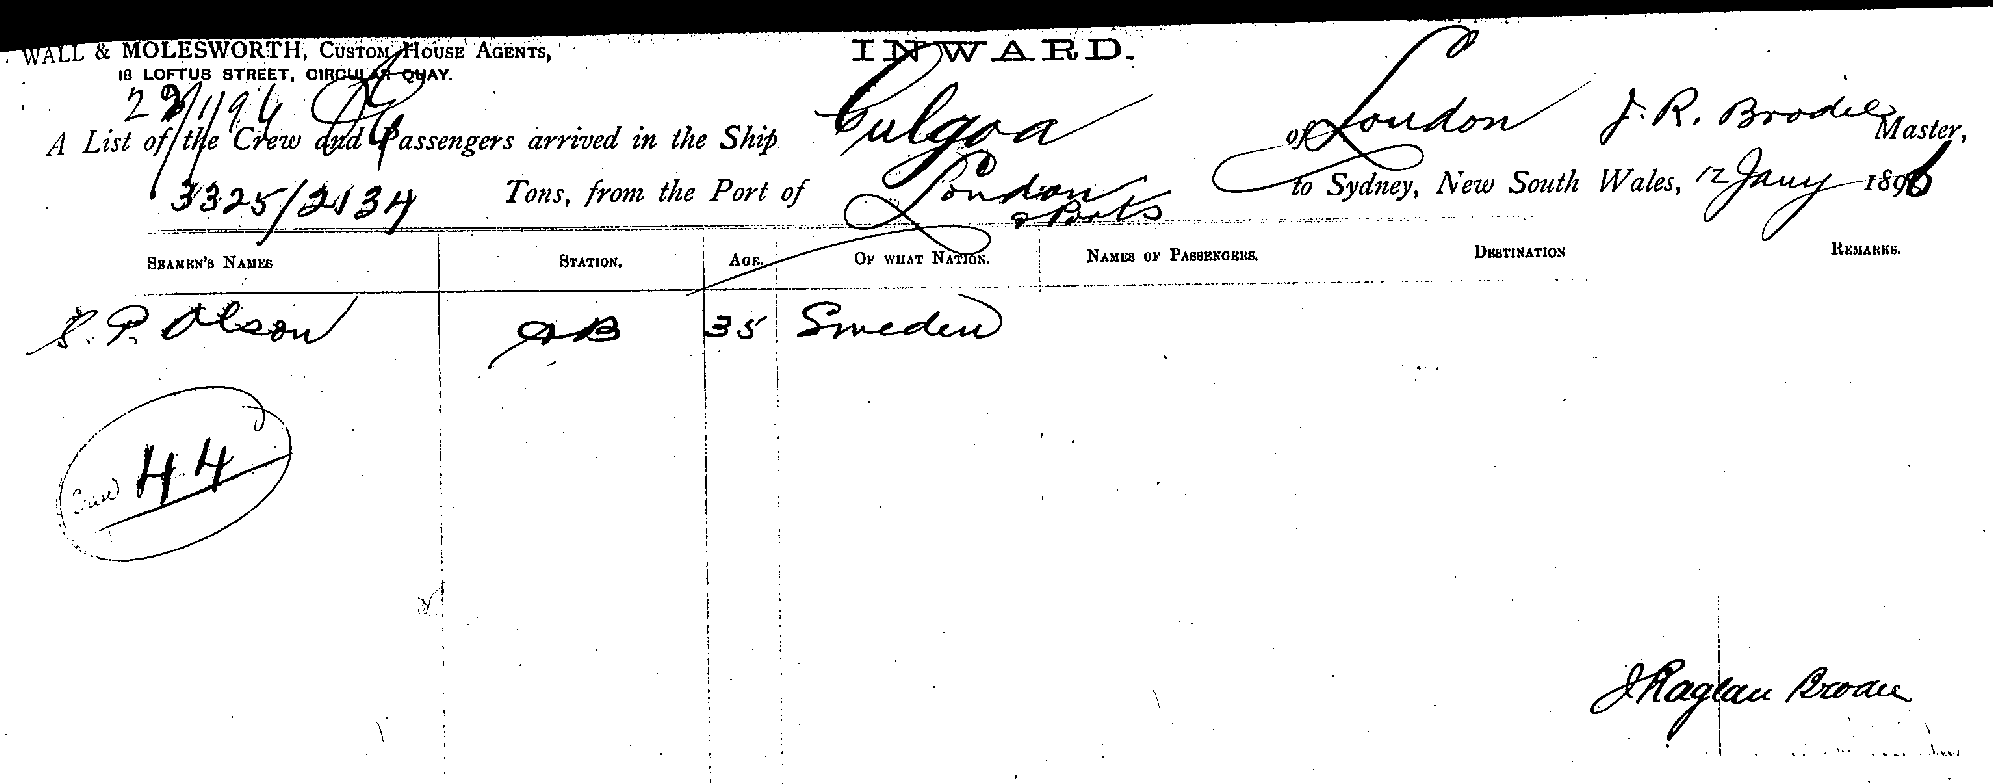 WALL & MOLESWORTH, CUSTOM HOUSE AGENTS,
18 LOFTUS STREET, CIRCULAR QUAY.
INWARD.
22/1/96
A List of the Crew and Passengers arrived in the Ship Culgoa of London J. R. Brodie Master,
3325/2134 Tons, from the Port of London & Ports to Sydney, New South Wales, 12 Jany 1896
SEAMEN'S NAMES STATION. AGE. OF WHAT NATION. NAMES OF PASSENGERS. DESTINATION REMARKS.
S. P. Olson AB 35 Sweden
Crew 44
J Raglan Brodie